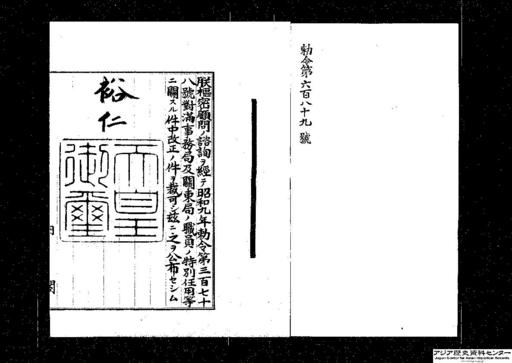 勅令第六百八十九號
朕樞密顧問ノ諮詢ヲ經テ昭和九年勅令第三百七十
八號對滿事務局及關東局ノ職員ノ特別任用等
ニ關スル件中改正ノ件ヲ裁可シ玆ニ之ヲ公布セシム
裕仁
天皇
御璽
内閣
アジア歴史資料センター
Japan Center for Asian Historical Records